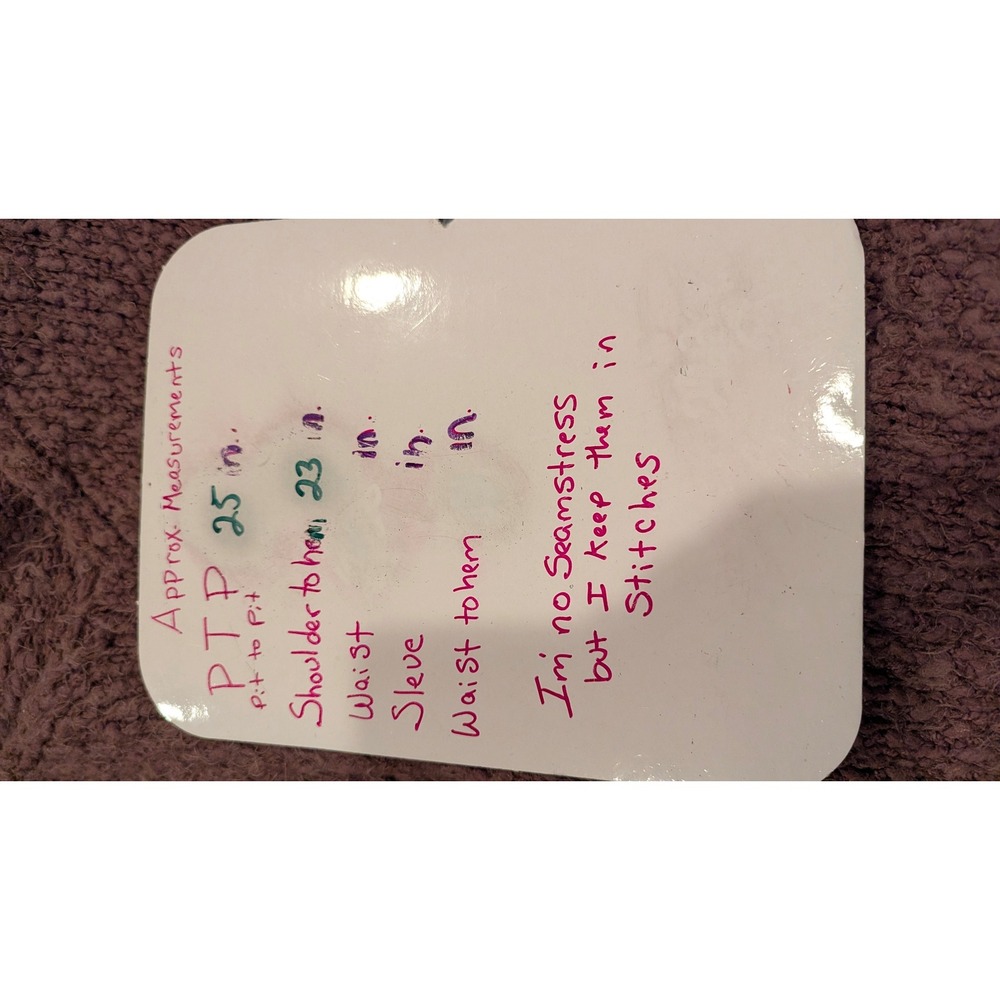 Approx. Measurements
PTP 25 in.
pit to pit
Shoulder to hem 23 in.
Waist in.
Sleve in.
Waist to hem in.
I'm no Seamstress
but I keep them in
Stitches